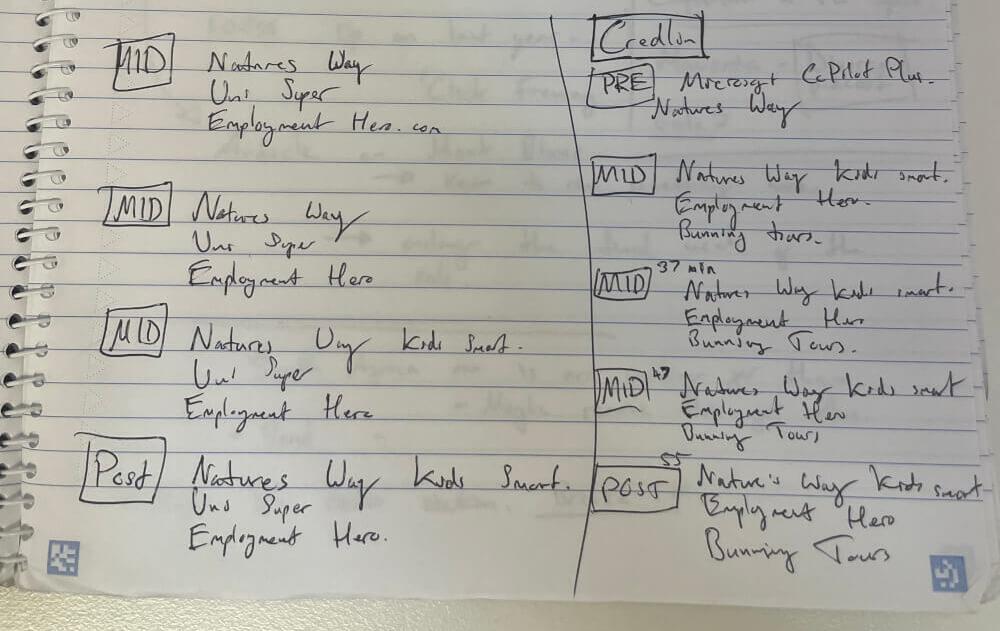 MID Natures Way
Uni Super
Employment Hero.com
MID Natures Way
Uni Super
Employment Hero
MID Natures Way Kids Smart.
Uni Super
Employment Hero
Post Natures Way Kids Smart.
Uni Super
Employment Hero.
PRE Microsoft CoPilot Plus.
Natures Way
MID Natures Way Kids smart.
Employment Hero.
Bunning tours.
MID 37 min
Natures Way Kids smart.
Employment Hero
Bunning Tours.
MID 47 Natures Way Kids smart
Employment Hero
Bunning Tours
POST 55 Nature's Way Kids smart
Employment Hero
Bunning Tours